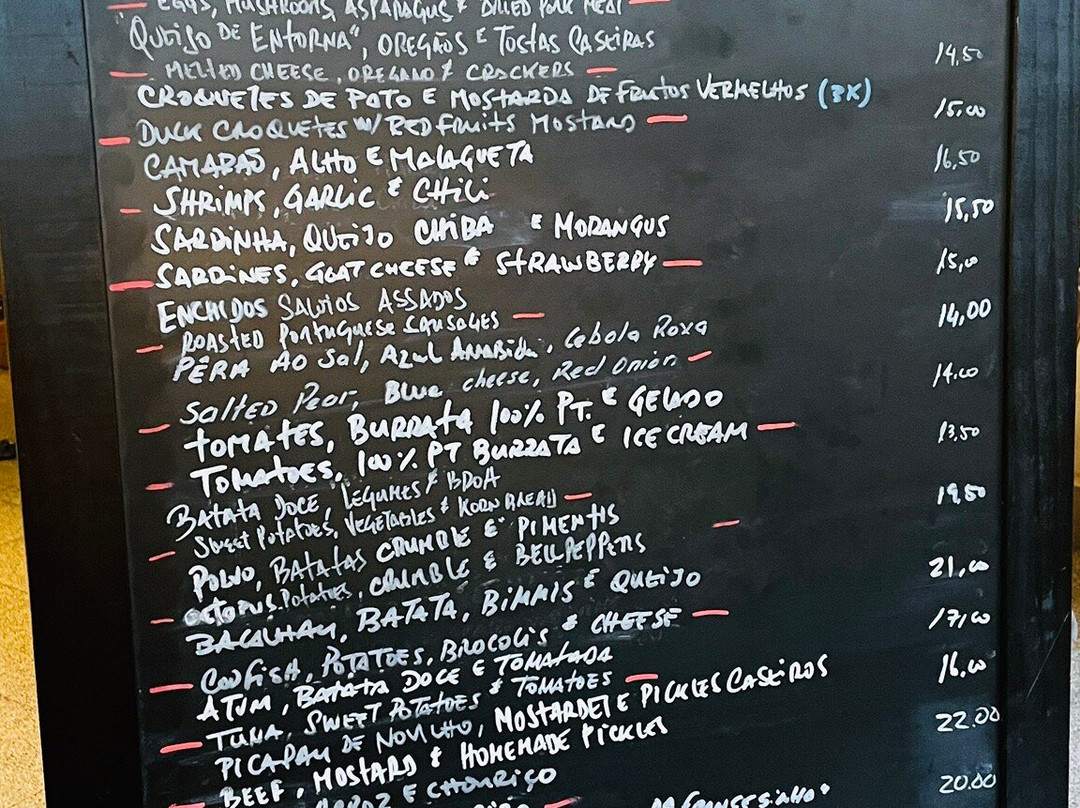 EGGS, MUSHROOMS, ASPARAGUS & DRIED PORK MEAT
"QUEIJO DE ENTORNA", OREGÃOS E TOSTAS CASEIRAS 14,50
MELTED CHEESE, OREGANO & CRACKERS
CROQUETES DE PATO E MOSTARDA DE FRUTOS VERMELHOS (3X) 15,00
DUCK CROQUETES W/ RED FRUITS MOSTARD
CAMARÃO, ALHO E MALAGUETA 16,50
SHRIMPS, GARLIC & CHILI
SARDINHA, QUEIJO CHIBA E MORANGUS 15,50
SARDINES, GOAT CHEESE & STRAWBERRY
ENCHIDOS ASSADOS 15,00
ROASTED PORTUGUESE SAUSAGES
PÊRA AO SAL, AZUL, Cebola Roxa 14,00
Salted Pear, Blue cheese, Red Onion
TOMATES, BURRATA 100% PT. E GELADO 14.00
TOMATOES, 100% PT BURRATA E ICE CREAM
BATATA DOCE, LEGUMES & BROA 13,50
SWEET POTATOES, VEGETABLES & KORN BREAD
POLVO, BATATAS CRUMBLE E PIMENTIS 19,50
OCTOPUS, POTATOES, CRUMBLE & BELL PEPPERS
BACALHAU, BATATA, BIMMIS E QUEIJO 21,00
CODFISH, POTATOES, BROCOLIS & CHEESE
ATUM, BATATA DOCE E TOMATADA 17,00
TUNA, SWEET POTATOES & TOMATOES
PICAPAU DE NOVILHO, MOSTARDE E PICKLES CASEIROS 16.00
BEEF, MOSTARD & HOMEMADE PICKLES
ARROZ E CHOURIÇO 22.00
20.00